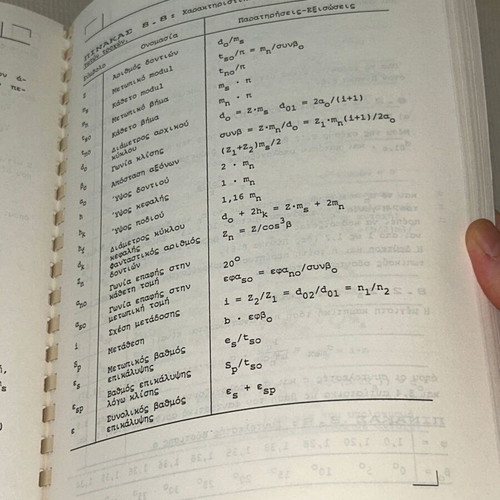 ΠΙΝΑΚΑΣ 8-8: Χαρακτηριστικ
Σύμβολο Ονομασία Παρατηρήσεις-Εξισώσεις
z Αριθμός δοντιών d₀/mₛ
mₛ Μετωπικό modul tₛ₀/π = mₙ/συνβ₀
mₙ Κάθετο modul tₙ₀/π
tₛ₀ Μετωπικό βήμα mₛ · π
tₙ₀ Κάθετο βήμα mₙ · π
d₀ Διάμετρος αρχικού κύκλου d₀ = Z·mₛ d₀₁ = 2α₀/(i+1)
β₀ Γωνία κλίσης συνβ = Z·mₙ/d₀ = Z₁·mₙ(i+1)/2α₀
α₀ Απόσταση αξόνων (Z₁+Z₂)mₛ/2
h Ύψος δοντιού 2 · mₙ
hₖ Ύψος κεφαλής 1 · mₙ
h_f Ύψος ποδιού 1,16 mₙ
dₖ Διάμετρος κύκλου κεφαλής d₀ + 2hₖ = Z·mₛ + 2mₙ
zₙ Φανταστικός αριθμός δοντιών Zₙ = Z/cos³β
αₙ₀ Γωνία επαφής στην κάθετη τομή 20⁰
αₛ₀ Γωνία επαφής στην μετωπική τομή εφαₛ₀ = εφαₙ₀/συνβ₀
i Σχέση μετάδοσης i = Z₂/Z₁ = d₀₂/d₀₁ = n₁/n₂
Sₚ Μετάθεση b · εφβ₀
εₛ Μετωπικός βαθμός επικάλυψης eₛ/tₛ₀
εₛₚ Βαθμός επικάλυψης λόγω κλίσης Sₚ/tₛ₀
ε Συνολικός βαθμός επικάλυψης εₛ + εₛₚ